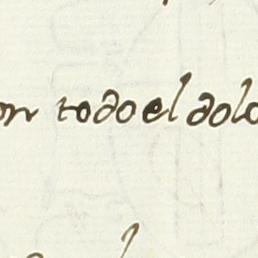 on todo el dolo